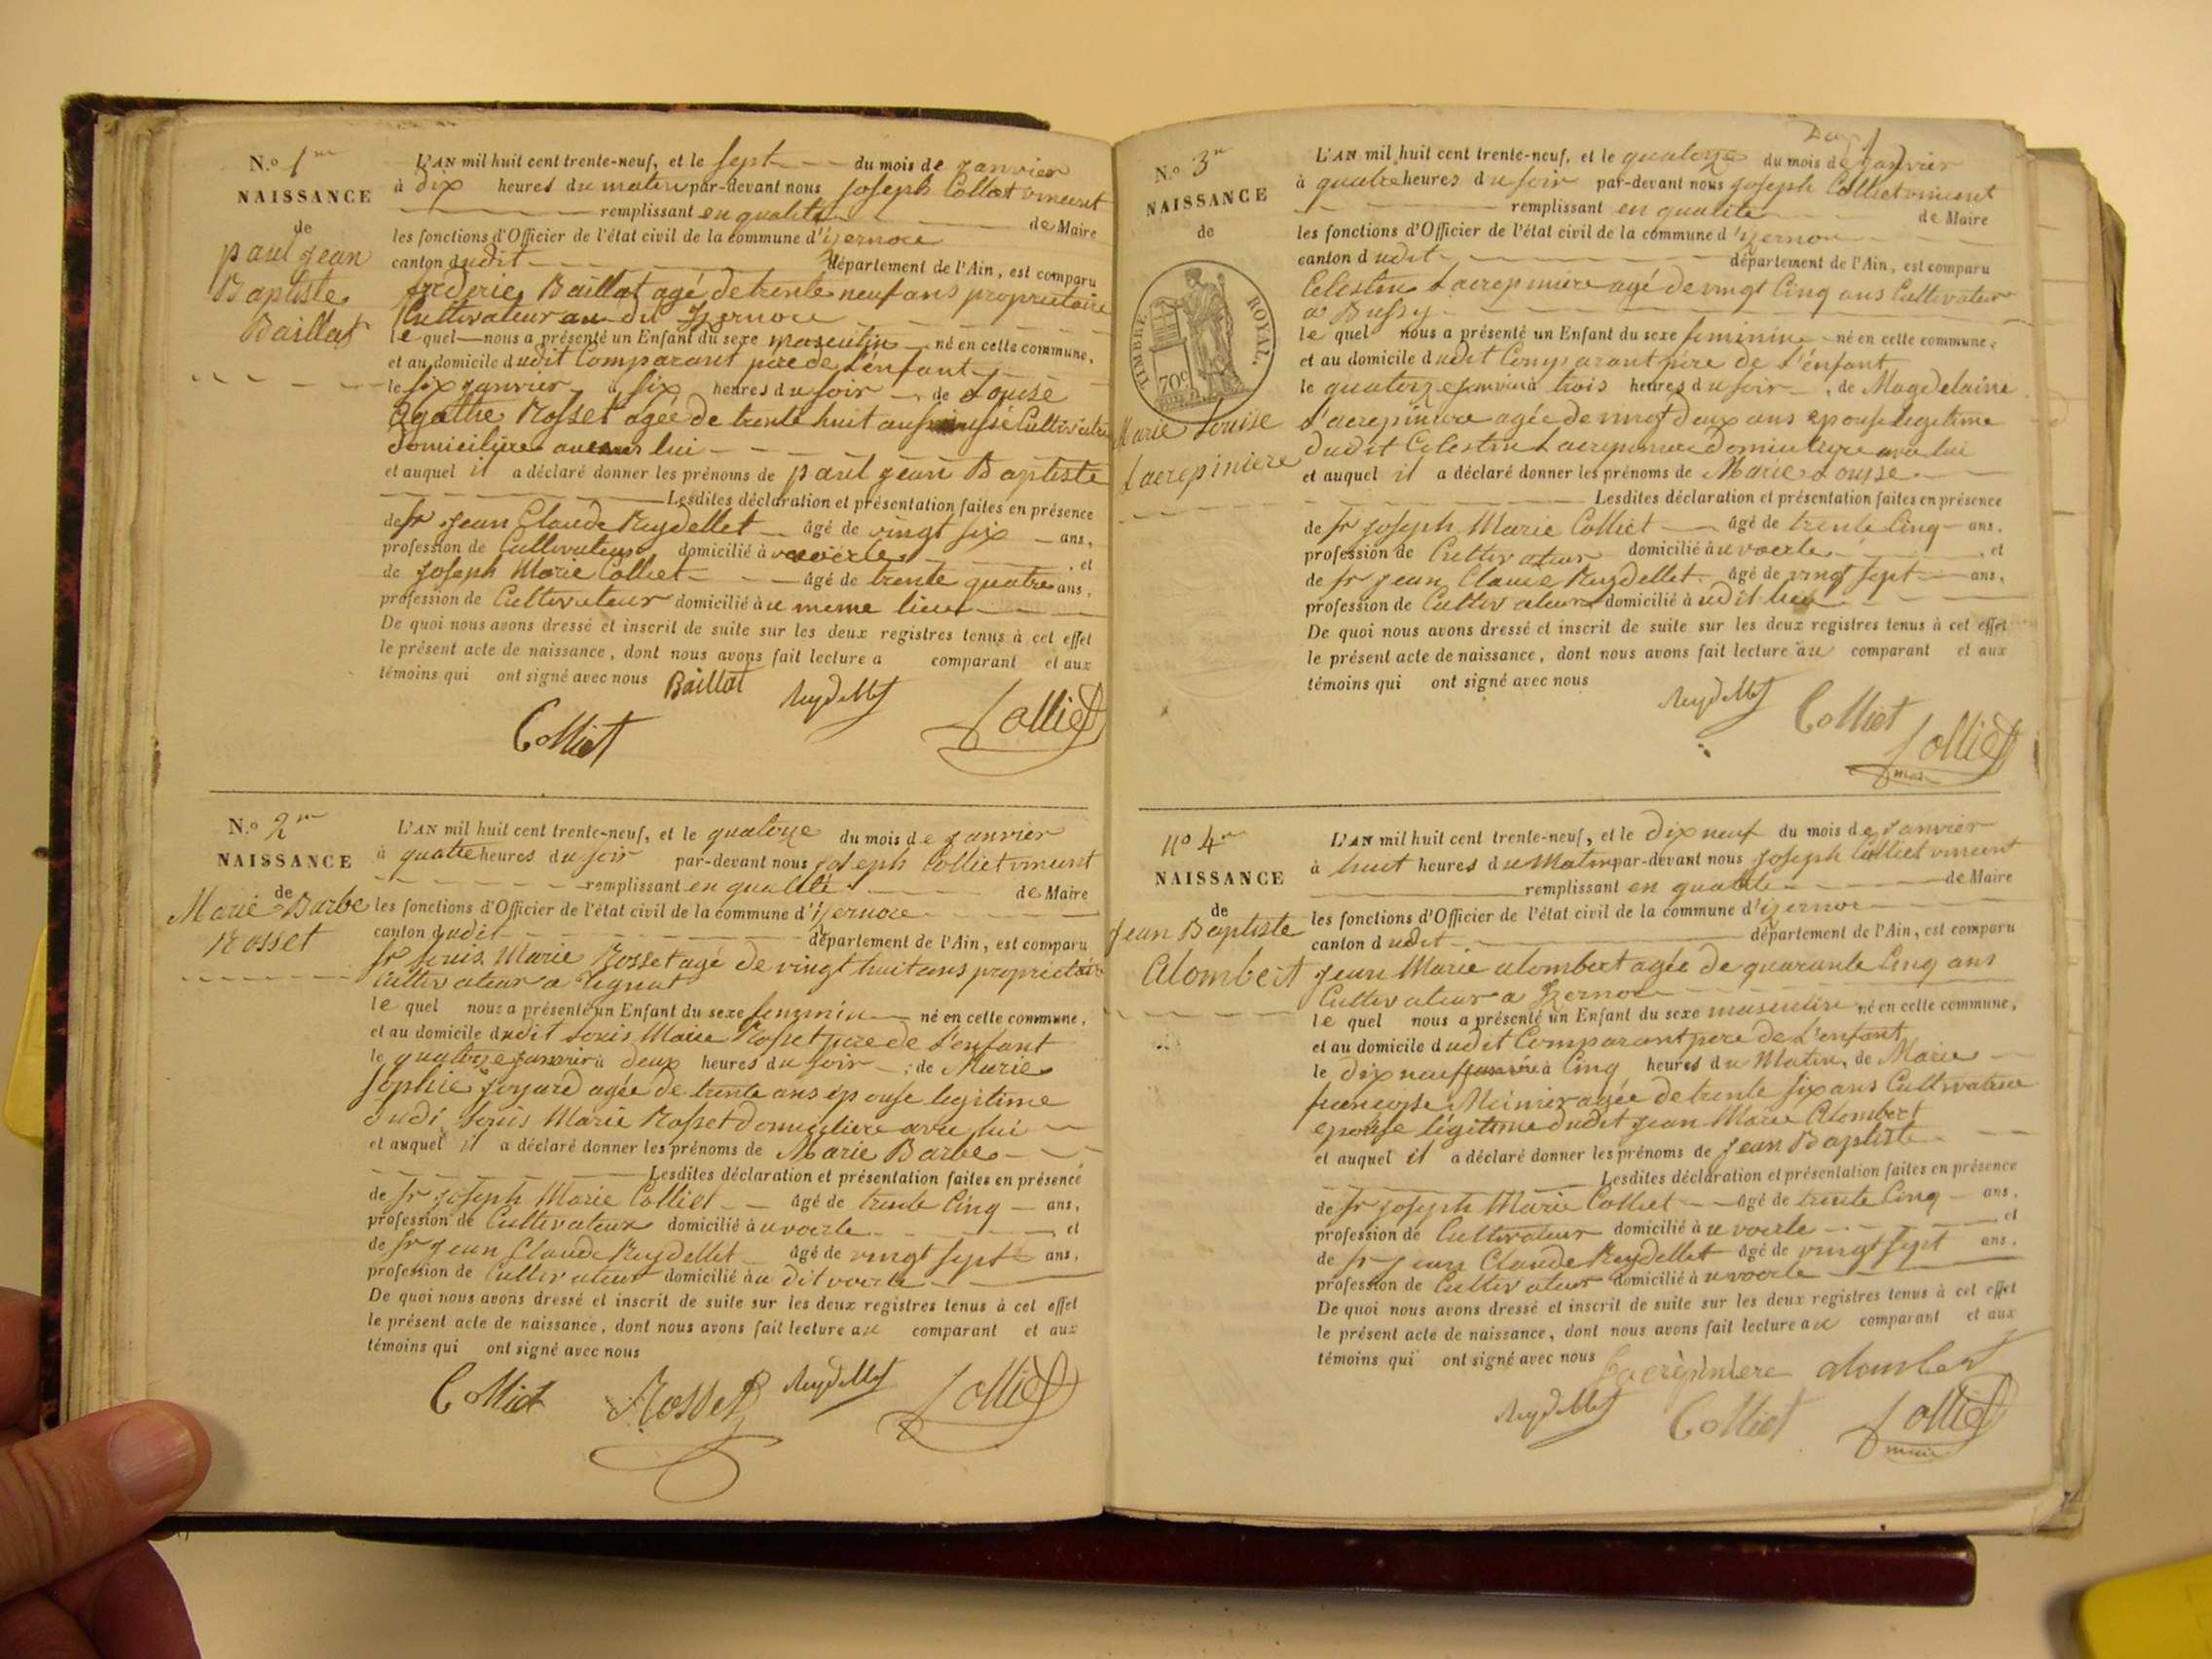 N.o 1er
NAISSANCE
de
paul jean
Baptiste
Baillat
L'AN mil huit cent trente-neuf, et le sept du mois de janvier
à dix heures du matin par-devant nous joseph Colliet vincent
remplissant en qualité de Maire
les fonctions d'Officier de l'état civil de la commune d'izernore
canton dudit département de l'Ain, est comparu
frederic Baillat agé de trente neuf ans proprietaire
Cultivateur au dit izernore
le quel nous a présenté un Enfant du sexe masculin né en cette commune,
et au domicile dudit Comparant père de l'enfant
le six janvier à six heures du soir de Louise
Agathe Rosset agée de trente huit ans
domiciliée avec lui
et auquel il a déclaré donner les prénoms de paul jean Baptiste
Lesdites déclaration et présentation faites en présence
de sr jean Claude Reydellet âgé de vingt six ans,
profession de Cultivateur domicilié à voerle et
de joseph Marie Colliet âgé de trente quatre ans,
profession de Cultivateur domicilié au meme lieu
De quoi nous avons dressé et inscrit de suite sur les deux registres tenus à cet effet
le présent acte de naissance, dont nous avons fait lecture a comparant et aux
témoins qui ont signé avec nous Baillat Reydellet
Colliet Colliet
N.o 2me
NAISSANCE
de
Marie Barbe
Rosset
L'AN mil huit cent trente-neuf, et le quatorze du mois de janvier
à quatre heures du soir par-devant nous joseph Colliet vincent
remplissant en qualité de Maire
les fonctions d'Officier de l'état civil de la commune d'izernore
canton dudit département de l'Ain, est comparu
sr Louis Marie Rosset agé de vingt huit ans proprietaire
Cultivateur a Tignat
le quel nous a présenté un Enfant du sexe feminin né en cette commune,
et au domicile dudit Louis Marie Rosset père de l'enfant
le quatorze janvier à deux heures du soir ; de Marie
Sophie joyard agée de trente ans épouse legitime
dudi Louis Marie Rosset domiciliée avec lui
et auquel il a déclaré donner les prénoms de Marie Barbe
Lesdites déclaration et présentation faites en présence
de sr joseph Marie Colliet âgé de trente Cinq ans,
profession de Cultivateur domicilié à voerle et
de sr jean Claude Reydellet âgé de vingt sept ans,
profession de Cultivateur domicilié au dit voerle
De quoi nous avons dressé et inscrit de suite sur les deux registres tenus à cet effet
le présent acte de naissance, dont nous avons fait lecture au comparant et aux
témoins qui ont signé avec nous
Colliet Rosset Reydellet Colliet
N.o 3e
NAISSANCE
de
TIMBRE ROYAL.
70c
Marie Louise
Lacrepiniere
L'AN mil huit cent trente-neuf, et le quatorze du mois de janvier
à quatre heures du soir par-devant nous joseph Colliet vincent
remplissant en qualité de Maire
les fonctions d'Officier de l'état civil de la commune d'izernore
canton dudit département de l'Ain, est comparu
Celestin Lacrepiniere agé de vingt Cinq ans Cultivateur
a Bussy
le quel nous a présenté un Enfant du sexe feminin né en cette commune,
et au domicile dudit Comparant père de l'enfant
le quatorze janvier à trois heures du soir , de Magdelaine
Lacrepiniere agée de vingt deux ans epouse legitime
dudit Celestin Lacrepiniere domiciliée avec lui
et auquel il a déclaré donner les prénoms de Marie Louise
Lesdites déclaration et présentation faites en présence
de sr joseph Marie Colliet âgé de trente Cinq ans,
profession de Cultivateur domicilié à voerle , et
de sr jean Claude Reydellet âgé de vingt sept ans,
profession de Cultivateur domicilié à udit lieu
De quoi nous avons dressé et inscrit de suite sur les deux registres tenus à cet effet
le présent acte de naissance, dont nous avons fait lecture au comparant et aux
témoins qui ont signé avec nous
Reydellet Colliet Colliet
maire
no 4e
NAISSANCE
de
jean Baptiste
Alombert
L'AN mil huit cent trente-neuf, et le dix neuf du mois de janvier
à huit heures du Matin par-devant nous joseph Colliet vincent
remplissant en qualité de Maire
les fonctions d'Officier de l'état civil de la commune d'izernore
canton dudit département de l'Ain, est comparu
jean Marie alombert agée de quarante Cinq ans
Cultivateur a izernore
le quel nous a présenté un Enfant du sexe masculin né en cette commune,
et au domicile dudit Comparant père de l'enfant
le dix neuf janvier à Cinq heures du Matin, de Marie
francoise agée de trente six ans Cultivatrice
epouse légitime dudit jean Marie Alombert
et auquel il a déclaré donner les prénoms de jean Baptiste
Lesdites déclaration et présentation faites en présence
de sr joseph Marie Colliet âgé de trente Cinq ans,
profession de Cultivateur domicilié à u voerle et
de sr jean Claude Reydellet âgé de vingt sept ans,
profession de Cultivateur domicilié à u voerle
De quoi nous avons dressé et inscrit de suite sur les deux registres tenus à cet effet
le présent acte de naissance, dont nous avons fait lecture au comparant et aux
témoins qui ont signé avec nous Lacrepiniere alombert
Reydellet Colliet Colliet
maire